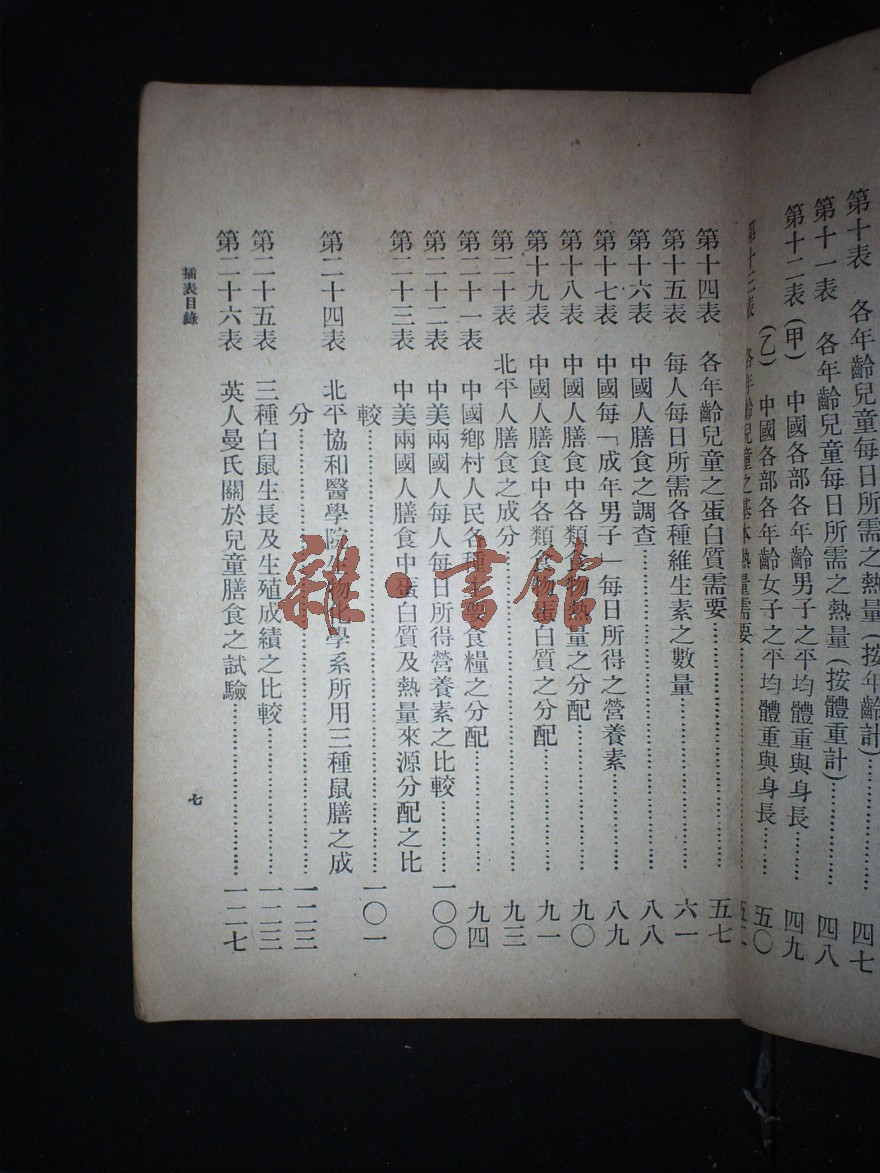 第十表　各年齡兒童每日所需之熱量(按年齡計)………四七
第十一表　各年齡兒童每日所需之熱量(按體重計)………四八
第十二表(甲)　中國各部各年齡男子之平均體重與身長………四九
(乙)　中國各部各年齡女子之平均體重與身長………五〇
第十三表　各年齡兒童之基本熱量需要………
第十四表　各年齡兒童之蛋白質需要………五七
第十五表　每人每日所需各種維生素之數量………六一
第十六表　中國人膳食之調查………八八
第十七表　中國每「成年男子」每日所得之營養素………八九
第十八表　中國人膳食中各類食物熱量之分配………九〇
第十九表　中國人膳食中各類食物蛋白質之分配………九一
第二十表　北平人膳食之成分………九三
第二十一表　中國鄉村人民各種主要食糧之分配………九四
第二十二表　中美兩國人每人每日所得營養素之比較………一〇〇
第二十三表　中美兩國人膳食中蛋白質及熱量來源分配之比
較………一〇一
第二十四表　北平協和醫學院生物化學系所用三種鼠膳之成
分………一二三
第二十五表　三種白鼠生長及生殖成績之比較………一二三
第二十六表　英人曼氏關於兒童膳食之試驗………一二七
插表目錄
七
雜·書館